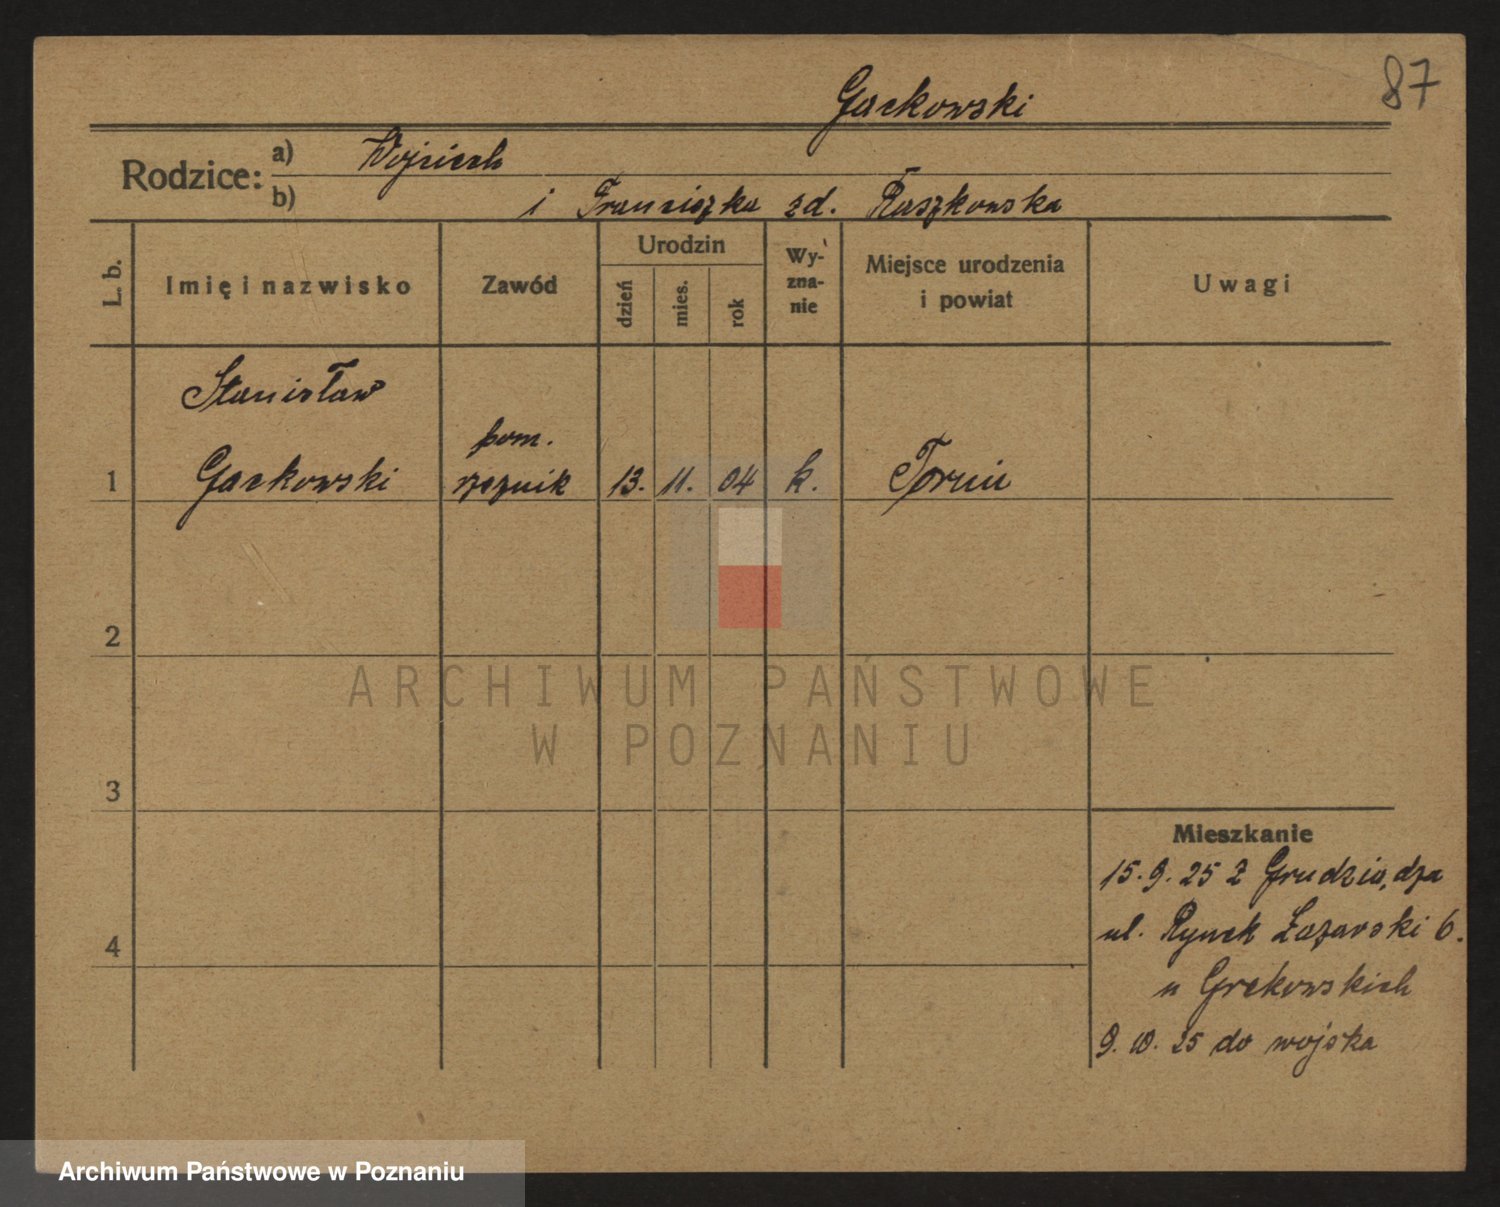 87
Gackowski
Rodzice: a) Wojciech
b) i Franciszka zd. Raszkowska
L. b.
Imię i nazwisko
Zawód
Urodzin
dzień
mies.
rok
Wy-
zna-
nie
Miejsce urodzenia
i powiat
Uwagi
Stanisław
pom.
1 Gackowski rzeźnik 13. 11. 04 k. Toruń
2
3
4
Mieszkanie
15. 9. 25 z Grudziądza
ul. Rynek Łazarski 6.
u Grekowskich
9. 10. 25 do wojska
ARCHIWUM PAŃSTWOWE
W POZNANIU
Archiwum Państwowe w Poznaniu